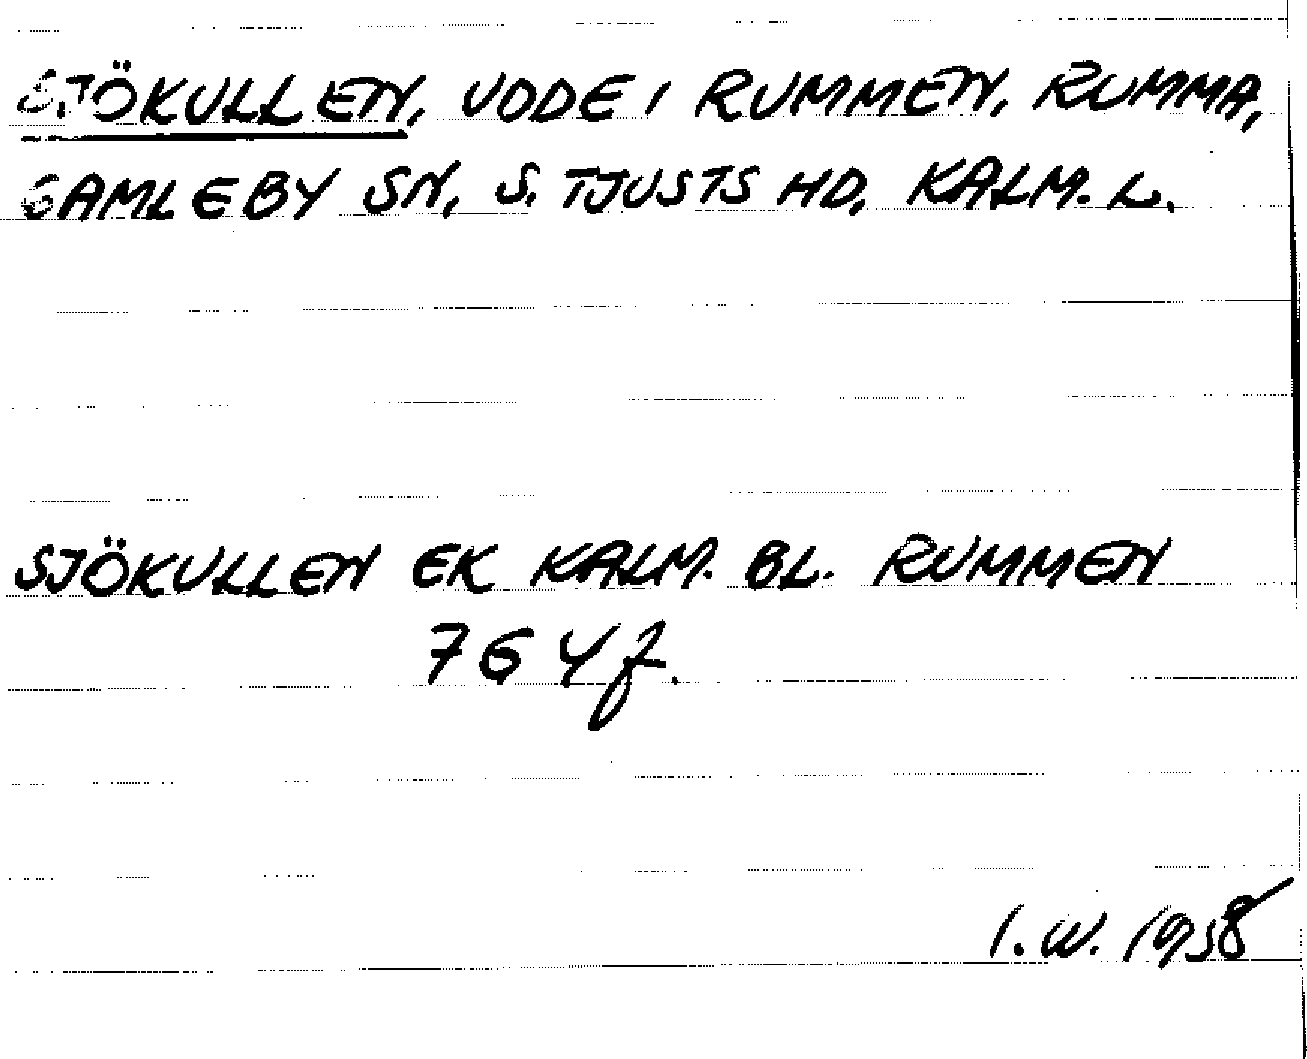 SJÖKULLEN, UDDE I RUMMEN, RUMMA,
GAMLEBY SN, S. TJUSTS HD, KALM. L.
SJÖKULLEN EK KALM. BL. RUMMEN
7G4f.
I.W. 1958